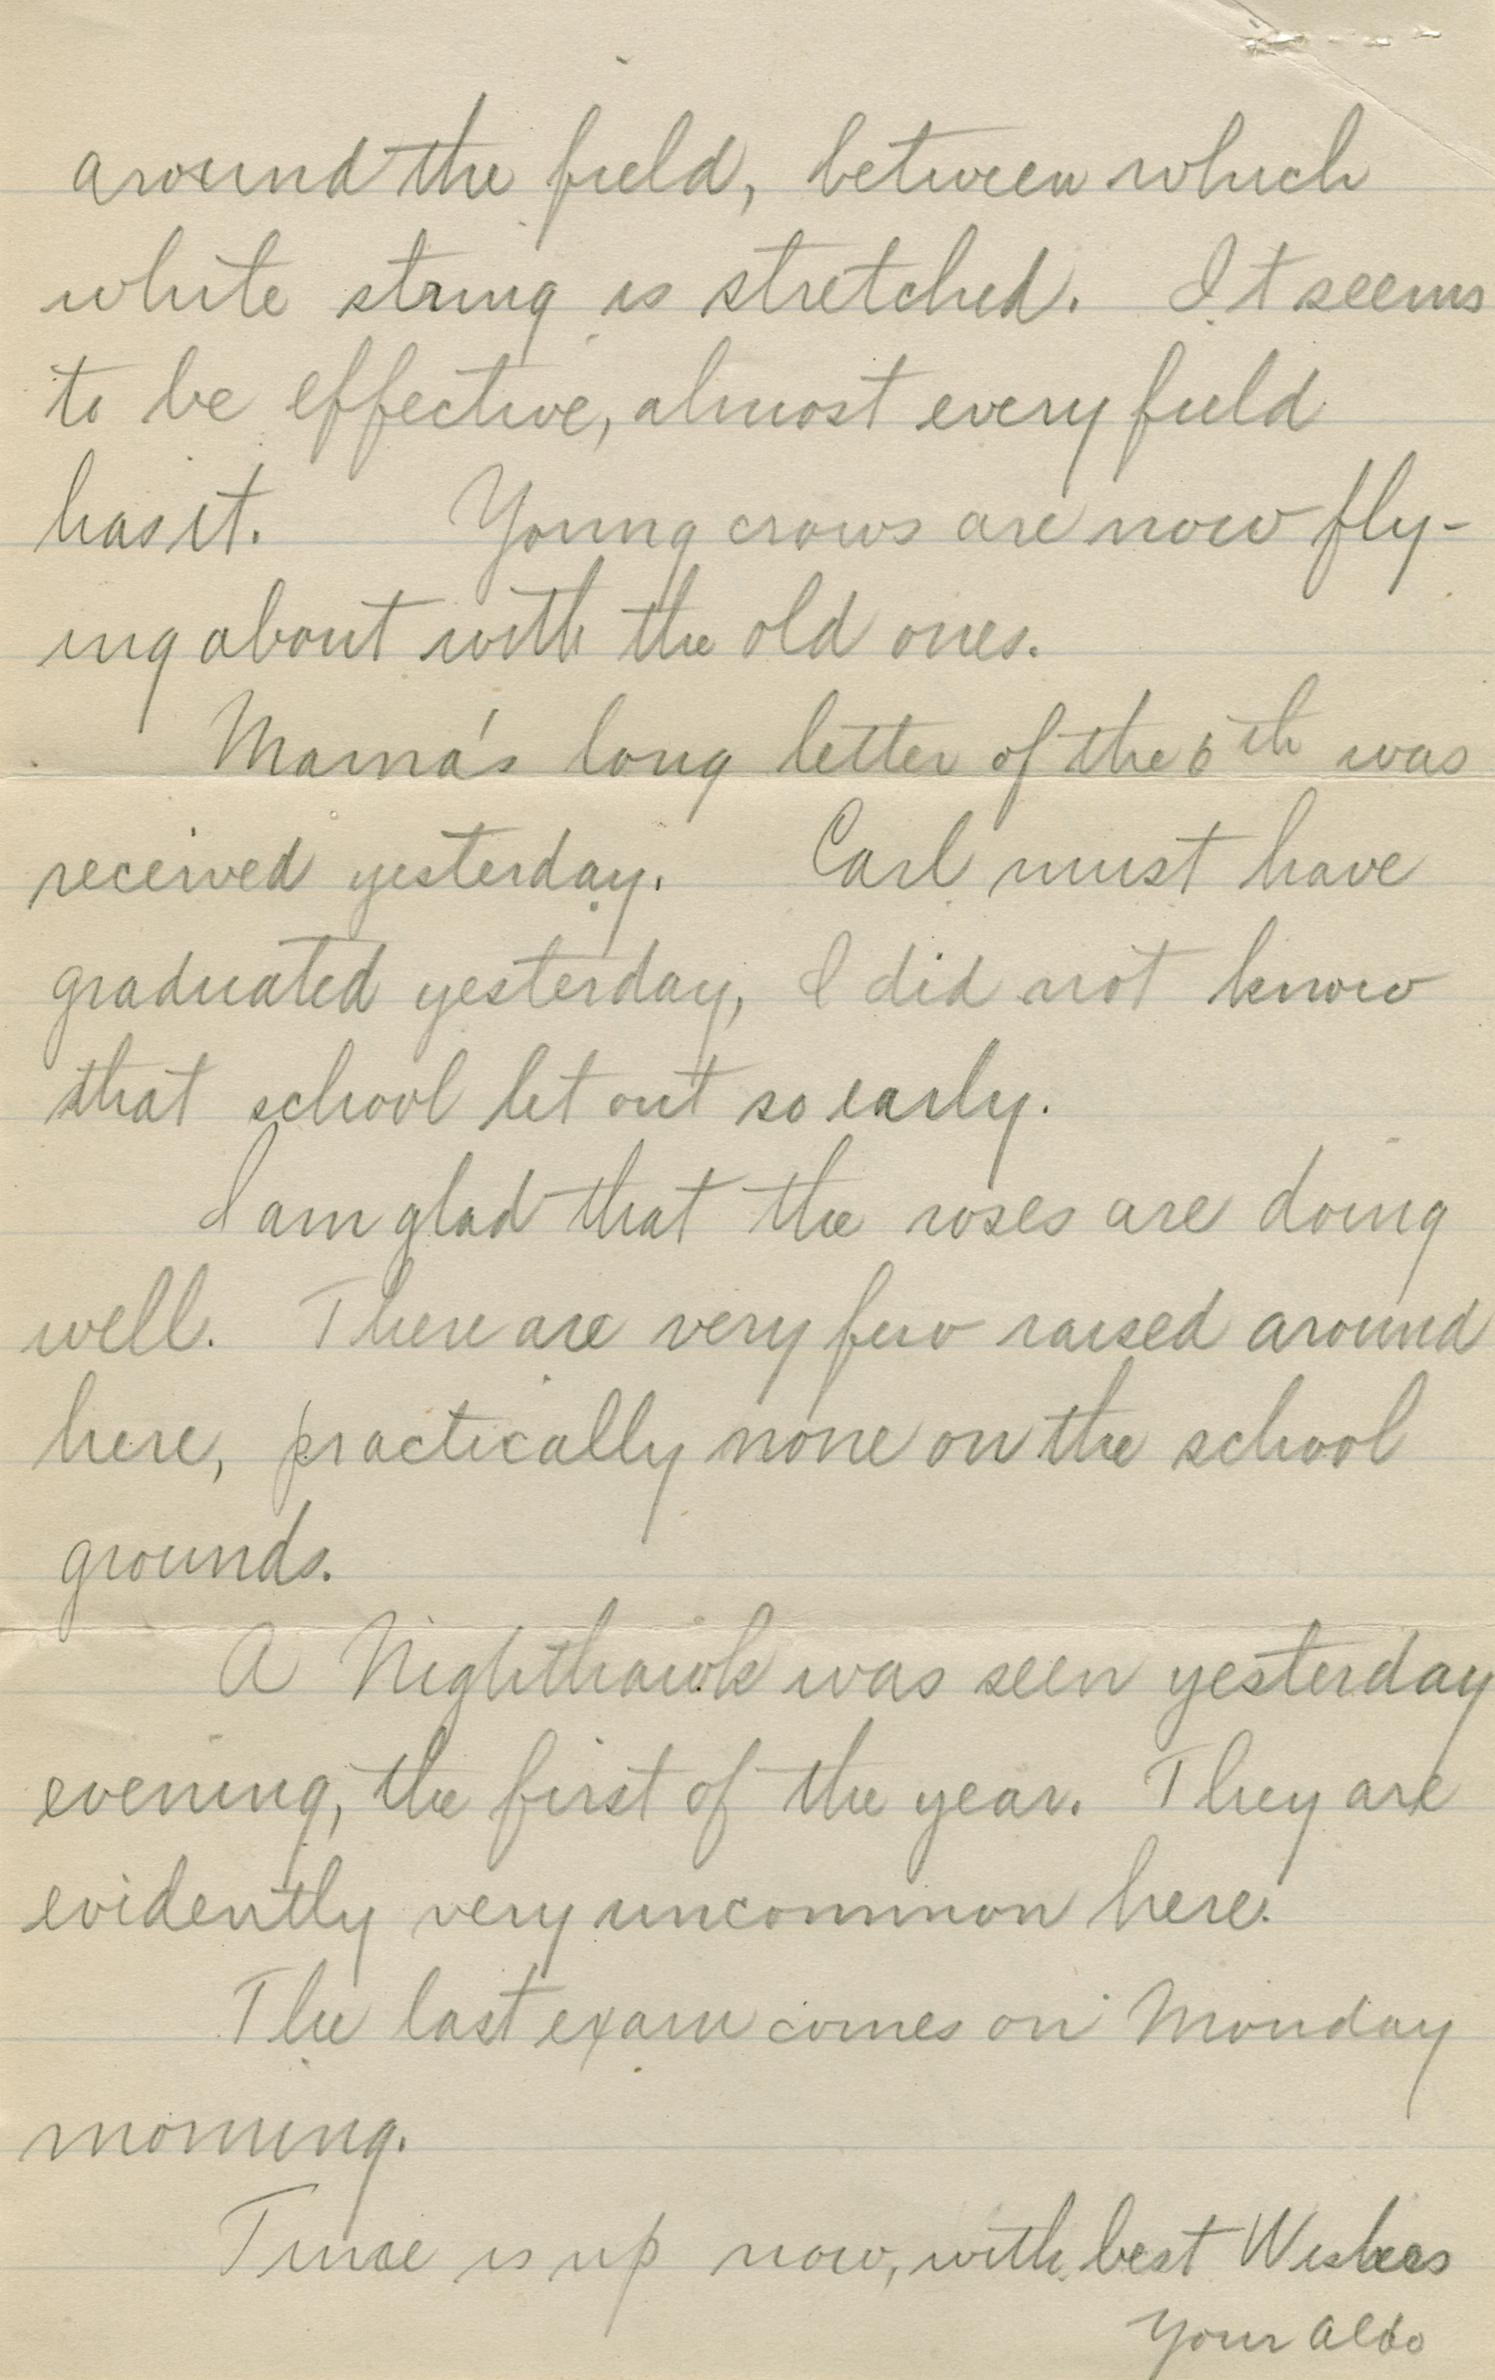 around the field, between which
white string is stretched. It seems
to be effective, almost every field
has it. Young crows are now fly-
ing about with the old ones.
Mama's long letter of the 6th was
received yesterday. Carl must have
graduated yesterday, I did not know
that school let out so early.
I am glad that the roses are doing
well. There are very few raised around
here, practically none on the school
grounds.
A Nighthawk was seen yesterday
evening, the first of the year. They are
evidently very uncommon here.
The last exam comes on Monday
morning.
Time is up now, with best Wishes
Your Aldo